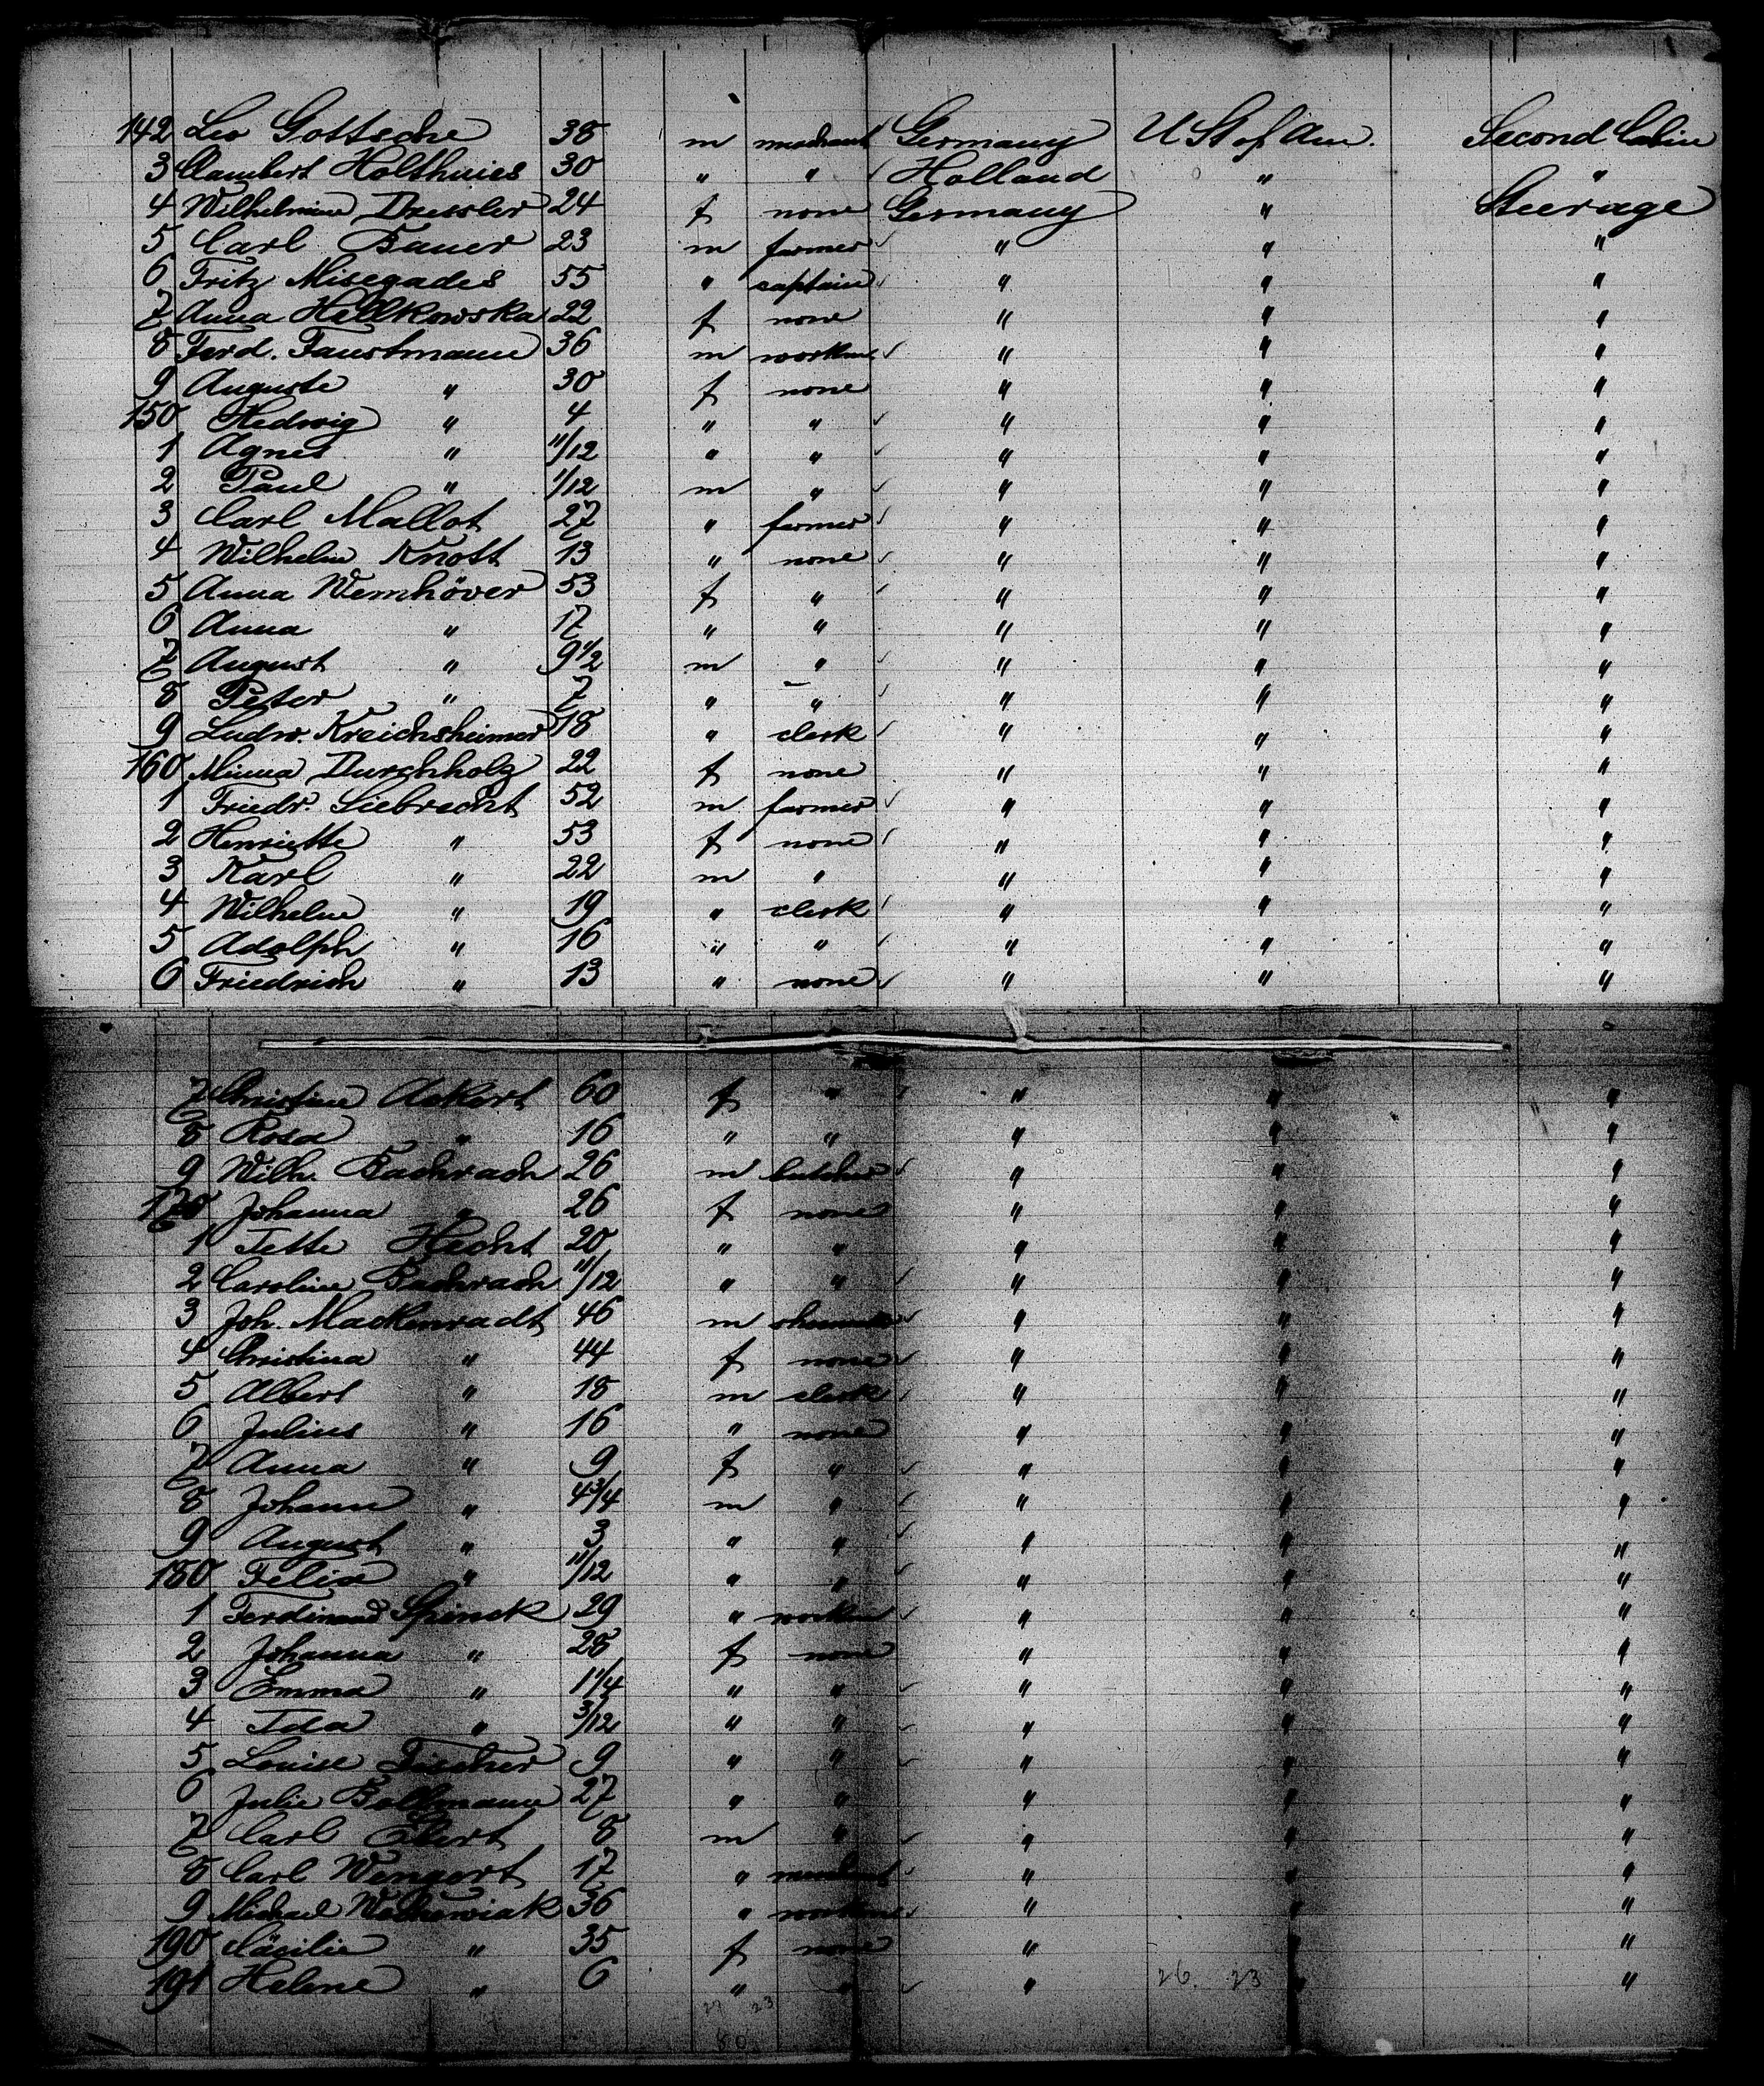 142 Leo Gottsche 38 m merchant Germany U St of Am. Second Cabin
3 Lambert Holthuies 30 " " Holland " "
4 Wilhelmine Dressler 24 f none Germany " Steerage
5 Carl Bauer 23 m farmer " " "
6 Fritz Misegades 55 " captain " " "
7 Anna Hellkowska 22 f none " " "
8 Ferd. Faustmann 36 m workm. " " "
9 Auguste " 30 f none " " "
150 Hedwig " 4 " " " " "
1 Agnes " 11/12 " " " " "
2 Paul " 1/12 m " " " "
3 Carl Mallot 27 " farmer " " "
4 Wilhelm Knott 13 " none " " "
5 Anna Wemhöver 53 f " " " "
6 Anna " 17 " " " " "
7 August " 9 1/2 m " " " "
8 Peter " 7 " " " " "
9 Ludw. Kreichsheimer 18 " clerk " " "
160 Minna Durchholz 22 f none " " "
1 Friedr. Siebrecht 52 m farmer " " "
2 Henriette " 53 f none " " "
3 Karl " 22 m " " " "
4 Wilhelm " 19 " clerk " " "
5 Adolph " 16 " " " " "
6 Friedrich " 13 " none " " "
7 Christine Ackert 60 f " " " "
8 Rosa " 16 " " " " "
9 Wilh. Bachrach 26 m butcher " " "
170 Johanna " 26 f none " " "
1 Jette Hecht 20 " " " " "
2 Caroline Bachrach 11/12 " " " " "
3 Joh. Mackenradt 46 m " " "
4 Christina " 44 f none " " "
5 Albert " 18 m clerk " " "
6 Julius " 16 " none " " "
7 Anna " 9 f " " " "
8 Johann " 4 3/4 m " " " "
9 August " 3 " " " " "
180 Felix " 11/12 " " " " "
1 Ferdinand Spinck 29 " workm " " "
2 Johanna " 28 f none " " "
3 Emma " 1 1/4 " " " " "
4 Ida " 3/12 " " " " "
5 Louise Fischer 9 " " " " "
6 Julie Bollmann 27 " " " " "
7 Carl Ebert 8 m " " " "
8 Carl Wengert 17 " merchant " " "
9 Michael 36 " workm " " "
190 Cäcilie " 35 f none " " "
191 Helene " 6 " " " 26. 23 " "
27 23
50